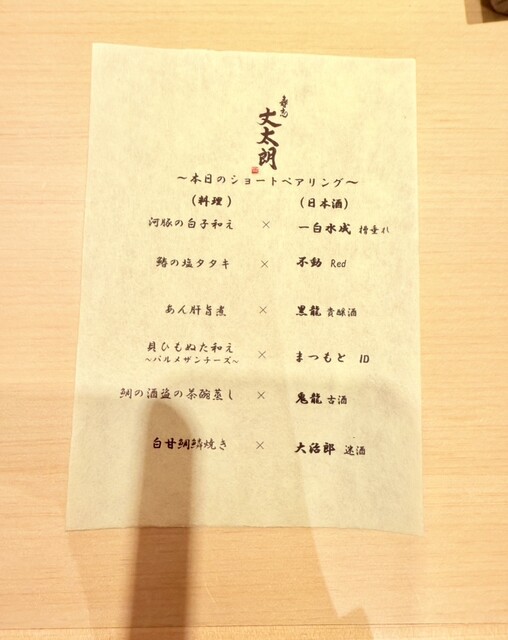 寿志
丈太朗
～本日のショートペアリング～
（料理） （日本酒）
河豚の白子和え × 一白水成 槽垂れ
鰆の塩タタキ × 不動 Red
あん肝旨煮 × 黒龍 貴醸酒
貝ひもぬた和え × まつもと ID
～パルメザンチーズ～
鯛の酒盗の茶碗蒸し × 鬼龍 古酒
白甘鯛鱗焼き × 大治郎 迷酒